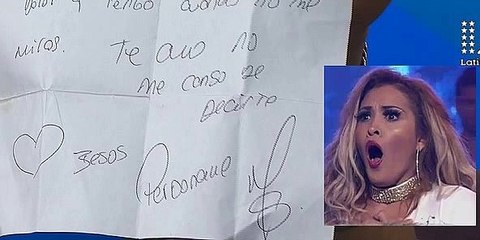 y tengo cuando no me
miras. Te amo no
me canso de
Decirte
Besos Perdoname
Lati